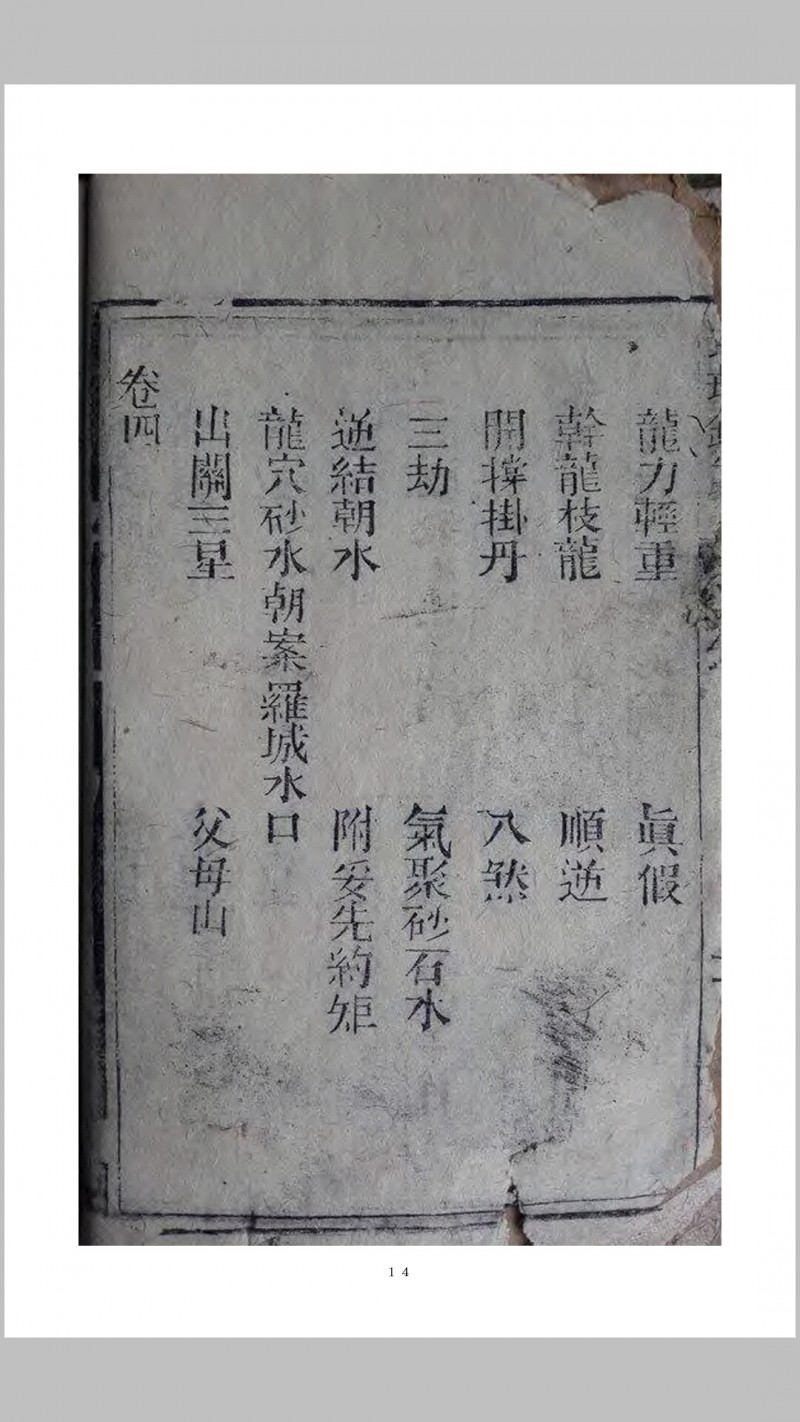 龍力輕重 眞假
幹龍枝龍 順逆
開撑掛丹 八煞
三劫 氣聚砂石水
逆結朝水 附妥先約矩
龍穴砂水朝案羅城水口
出關三星 父母山
卷四
14